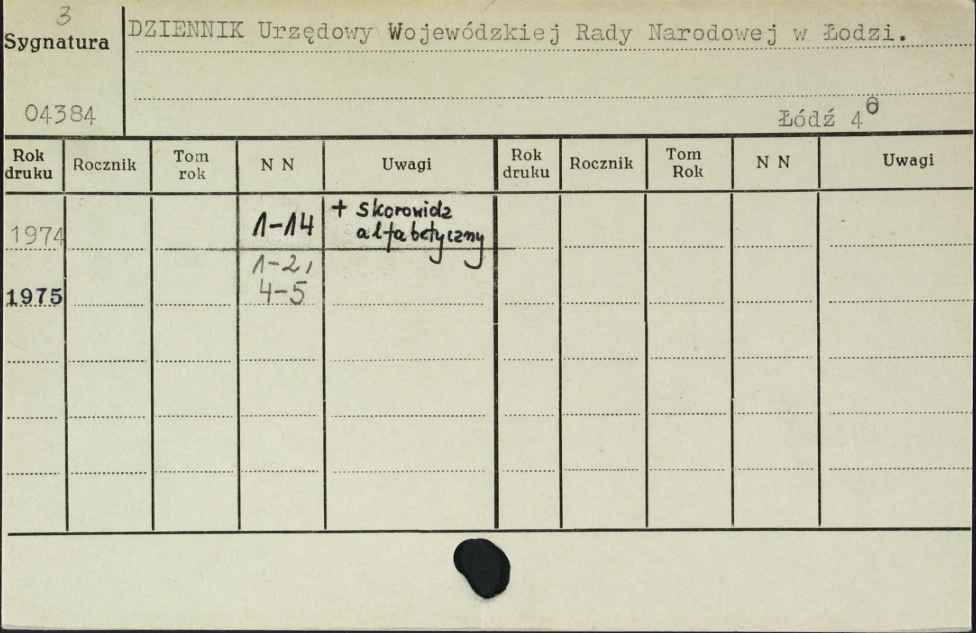 3
Sygnatura
DZIENNIK Urzędowy Wojewódzkiej Rady Narodowej w Łodzi.
04384
Łódź 4⁰
Rok druku Rocznik Tom rok N N Uwagi Rok druku Rocznik Tom Rok N N Uwagi
1974 1-14 + skorowidz
alfabetyczny
1-2,
1975 4-5